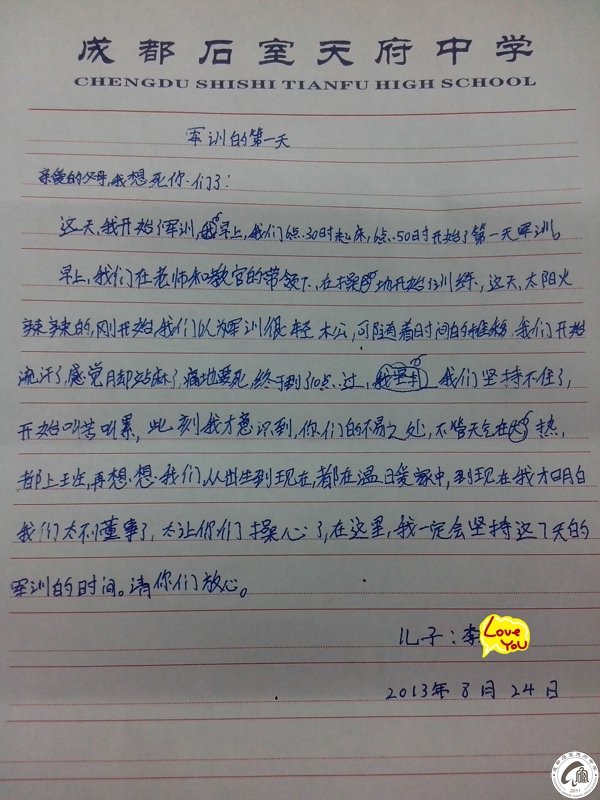 成都石室天府中学
CHENGDU SHISHI TIANFU HIGH SCHOOL
军训的第一天
亲爱的父母,我想死你们了:
这天,我开始了军训,早上,我们6点30时起床,6点50时开始了第一天军训。
早上,我们在老师和教官的带领下,在操场地开始了训练,这天,太阳火
辣辣的,刚开始,我们以为军训很轻松,可随着时间的推移,我们开始
流汗了,感觉脚站麻了,痛地要死,终于到了10点过,我们坚持不住了,
开始叫苦叫累,此刻我才意识到,你们的不易之处,不管天气在热,
都上班,再想想我们,从出生到现在,都在温暖家中,到现在我才明白
我们太不懂事了,太让你们操心了,在这里,我一定会坚持这7天的
军训的时间。请你们放心。
儿子:李
Love
YOU
2013年8月24日
2011